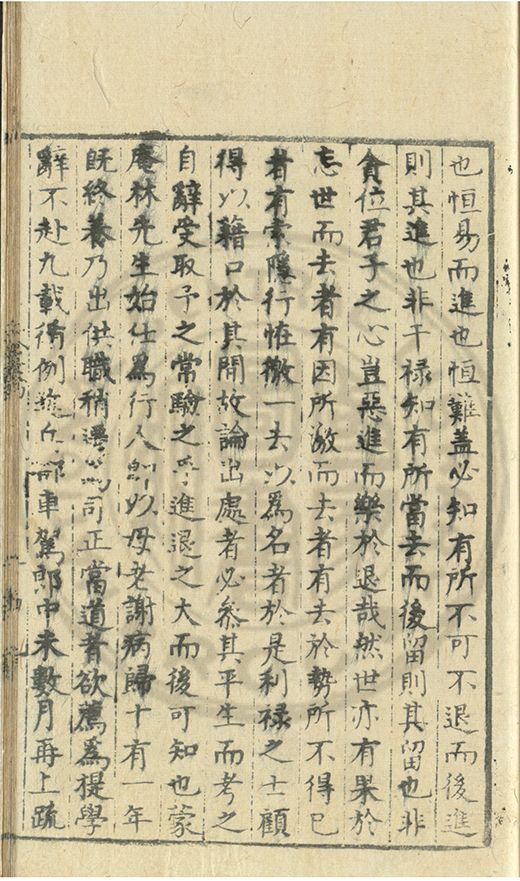 也恒易而進也恒難盖必知有所不可不退而後進
則其進也非干祿知有所當去而後留則其留也非
貪位君子之心豈惡進而樂於退哉然世亦有果於
忘世而去者有因所激而去者有去於勢所不得已
者有索隱行怪徼一去以為名者於是利祿之士顧
得以藉口於其間故論出處者必叅其平生而考之
自辭受取予之常驗之乎進退之大而後可知也蒙
庵林先生始仕為行人即以母老謝病歸十有一年
既終養乃出供職稍遷為司正當道者欲薦為提學
辭不赴九載循例遷兵部車駕郎中未數月再上疏